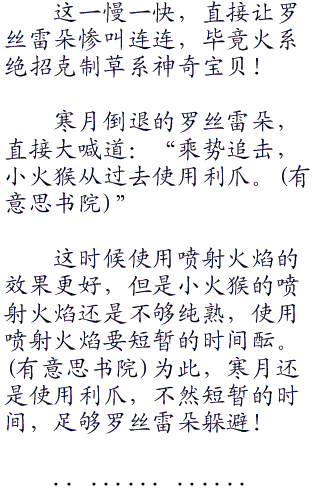 这一慢一快，直接让罗
丝雷朵惨叫连连，毕竟火系
绝招克制草系神奇宝贝！
寒月倒退的罗丝雷朵，
直接大喊道：“乘势追击，
小火猴从过去使用利爪。(有
意思书院)”
这时候使用喷射火焰的
效果更好，但是小火猴的喷
射火焰还是不够纯熟，使用
喷射火焰要短暂的时间酝。
(有意思书院)为此，寒月还
是使用利爪，不然短暂的时
间，足够罗丝雷朵躲避！
·· ······ ······